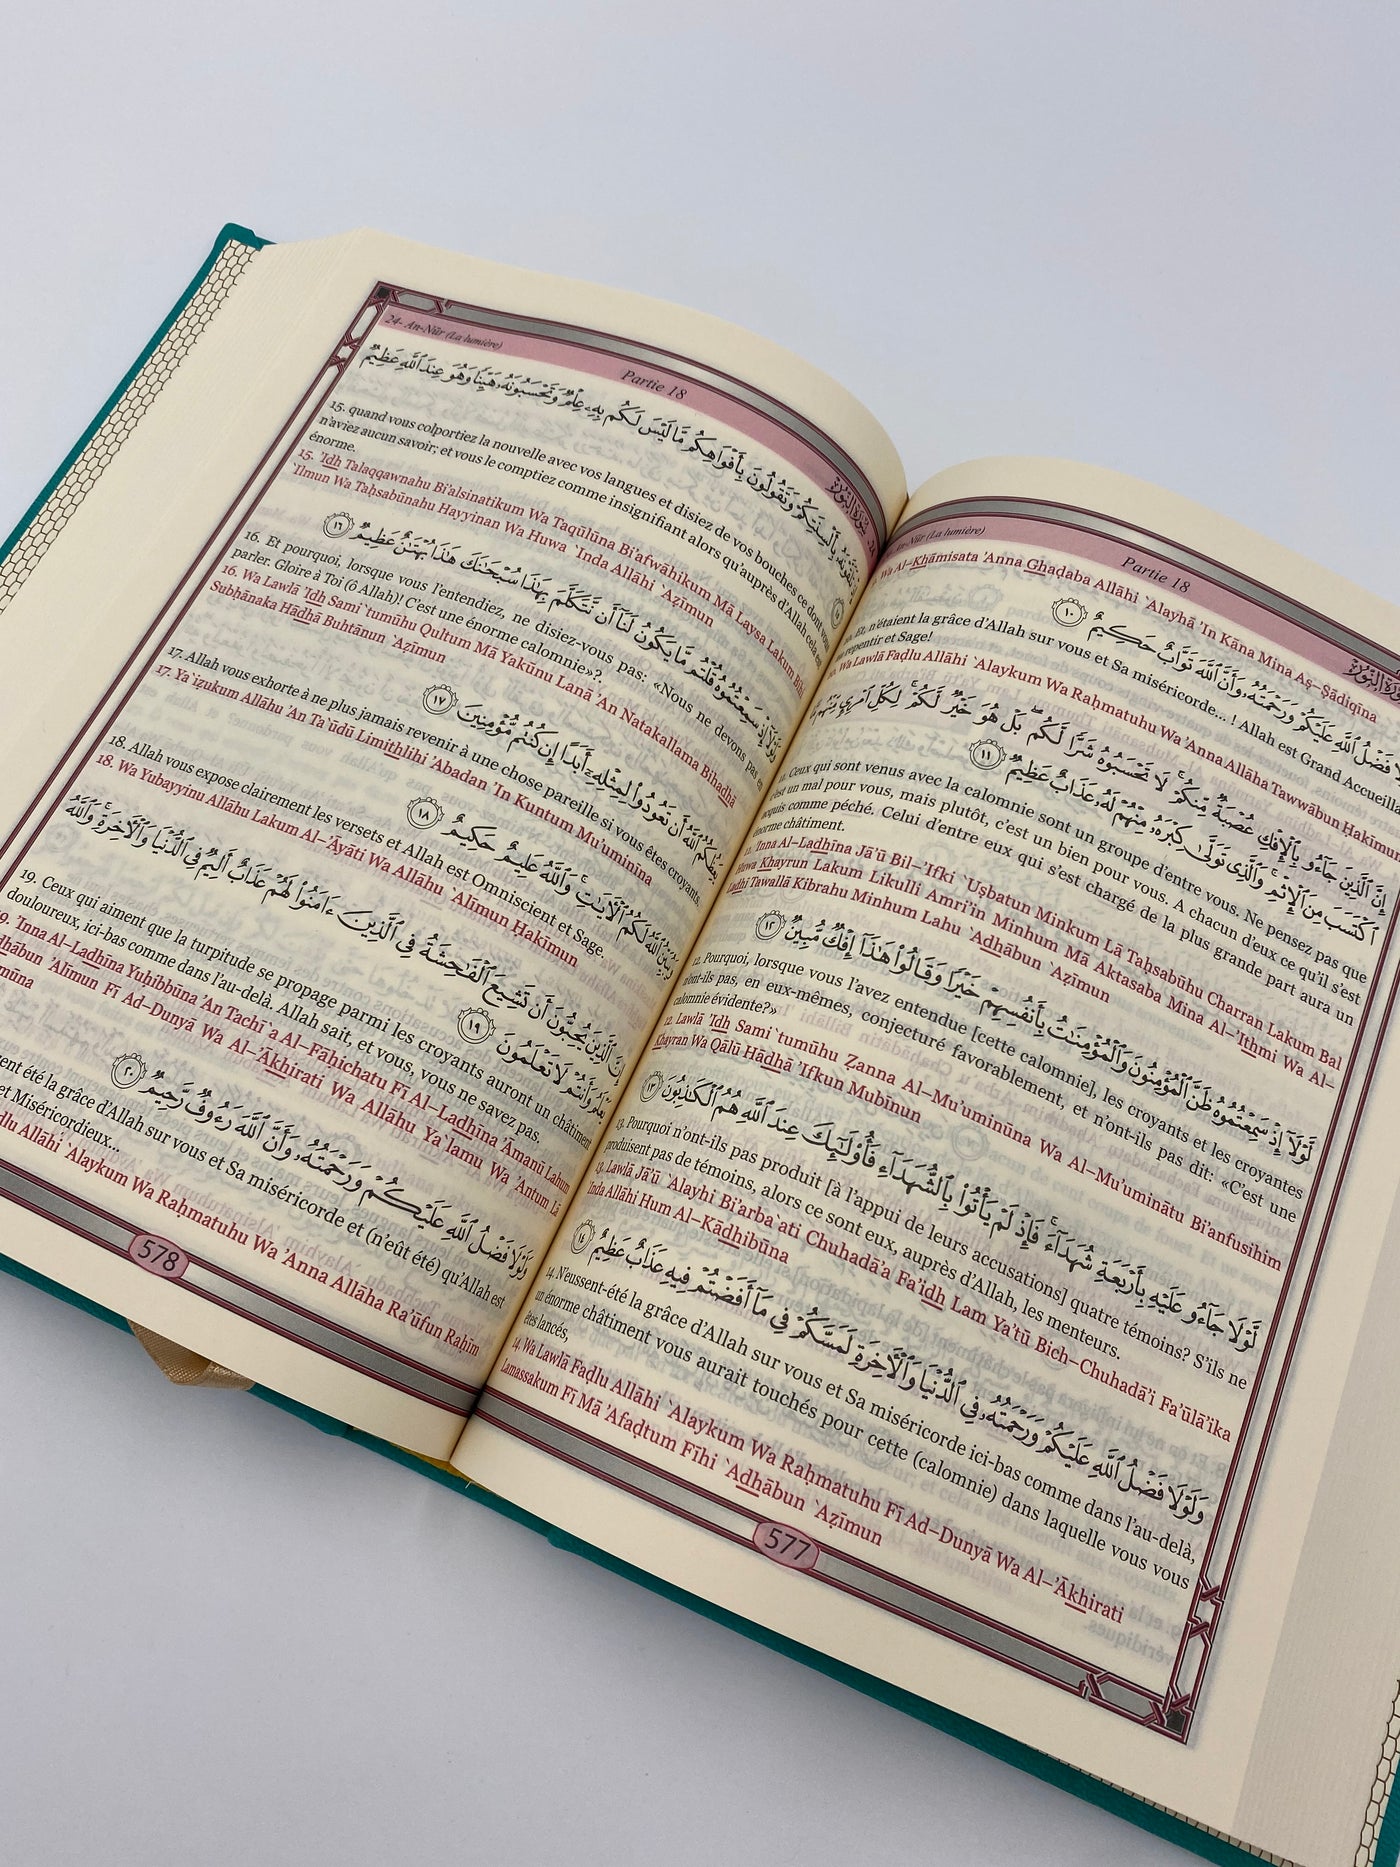 An-Nūr (La lumière)
Partie 18
Wa Al–Khāmisata 'Anna Ghaḍaba Allāhi `Alayhā 'In Kāna Mina Aṣ–Ṣādiqīna
فَضْلُ ٱللَّهِ عَلَيْكُمْ وَرَحْمَتُهُۥ وَأَنَّ ٱللَّهَ تَوَّابٌ حَكِيمٌ ١٠
n'étaient la grâce d'Allah sur vous et Sa miséricorde... ! Allah est Grand
repentir et Sage!
Wa Lawlā Faḍlu Allāhi `Alaykum Wa Raḥmatuhu Wa 'Anna Allāha Tawwābun Ḥakīmun
إِنَّ ٱلَّذِينَ جَآءُو بِٱلْإِفْكِ عُصْبَةٌ مِّنكُمْ ۚ لَا تَحْسَبُوهُ شَرًّا لَّكُم ۖ بَلْ هُوَ خَيْرٌ لَّكُمْ ۚ لِكُلِّ ٱمْرِئٍ مِّنْهُم مَّا
ٱكْتَسَبَ مِنَ ٱلْإِثْمِ ۚ وَٱلَّذِى تَوَلَّىٰ كِبْرَهُۥ مِنْهُمْ لَهُۥ عَذَابٌ عَظِيمٌ ١١
Ceux qui sont venus avec la calomnie sont un groupe d'entre vous. Ne pensez pas que
c'est un mal pour vous, mais plutôt, c'est un bien pour vous. A chacun d'eux ce qu'il s'est
acquis comme péché. Celui d'entre eux qui s'est chargé de la plus grande part aura un
énorme châtiment.
'Inna Al–Ladhīna Jā'ū Bil–'Ifki `Uṣbatun Minkum Lā Taḥsabūhu Charran Lakum Bal
Huwa Khayrun Lakum Likulli Amri'in Minhum Mā Aktasaba Mina Al–'Ithmi Wa Al–
Ladhī Tawallā Kibrahu Minhum Lahu `Adhābun `Aẓīmun
لَّوْلَآ إِذْ سَمِعْتُمُوهُ ظَنَّ ٱلْمُؤْمِنُونَ وَٱلْمُؤْمِنَٰتُ بِأَنفُسِهِمْ خَيْرًا وَقَالُوا۟ هَٰذَآ إِفْكٌ مُّبِينٌ ١٢
12. Pourquoi, lorsque vous l'avez entendue [cette calomnie], les croyants et les croyantes
n'ont-ils pas, en eux-mêmes, conjecturé favorablement, et n'ont-ils pas dit: «C'est une
calomnie évidente?»
12. Lawlā 'Idh Sami`tumūhu Ẓanna Al–Mu'uminūna Wa Al–Mu'uminātu Bi'anfusihim
Khayran Wa Qālū Hādhā 'Ifkun Mubīnun
لَّوْلَا جَآءُو عَلَيْهِ بِأَرْبَعَةِ شُهَدَآءَ ۚ فَإِذْ لَمْ يَأْتُوا۟ بِٱلشُّهَدَآءِ فَأُو۟لَٰٓئِكَ عِندَ ٱللَّهِ هُمُ ٱلْكَٰذِبُونَ ١٣
13. Pourquoi n'ont-ils pas produit [à l'appui de leurs accusations] quatre témoins? S'ils ne
produisent pas de témoins, alors ce sont eux, auprès d'Allah, les menteurs.
13. Lawlā Jā'ū `Alayhi Bi'arba`ati Chuhadā'a Fa'idh Lam Ya'tū Bich–Chuhadā'i Fa'ūlā'ika
`Inda Allāhi Hum Al–Kādhibūna
وَلَوْلَا فَضْلُ ٱللَّهِ عَلَيْكُمْ وَرَحْمَتُهُۥ فِى ٱلدُّنْيَا وَٱلْـَٔاخِرَةِ لَمَسَّكُمْ فِى مَآ أَفَضْتُمْ فِيهِ عَذَابٌ عَظِيمٌ ١٤
14. N'eussent-été la grâce d'Allah sur vous et Sa miséricorde ici-bas comme dans l'au-delà,
un énorme châtiment vous aurait touchés pour cette (calomnie) dans laquelle vous vous
êtes lancés,
14. Wa Lawlā Faḍlu Allāhi `Alaykum Wa Raḥmatuhu Fī Ad–Dunyā Wa Al–'Ākhirati
Lamassakum Fī Mā 'Afaḍtum Fīhi `Adhābun `Aẓīmun
577
24- An-Nūr (La lumière)
Partie 18
سُورَةُ ٱلنُّورِ
تَلَقَّوْنَهُۥ بِأَلْسِنَتِكُمْ وَتَقُولُونَ بِأَفْوَاهِكُم مَّا لَيْسَ لَكُم بِهِۦ عِلْمٌ وَتَحْسَبُونَهُۥ هَيِّنًا وَهُوَ عِندَ ٱللَّهِ عَظِيمٌ ١٥
15. quand vous colportiez la nouvelle avec vos langues et disiez de vos bouches ce dont vous
n'aviez aucun savoir; et vous le comptiez comme insignifiant alors qu'auprès d'Allah cela est
énorme.
15. 'Idh Talaqqawnahu Bi'alsinatikum Wa Taqūlūna Bi'afwāhikum Mā Laysa Lakum Bihi
`Ilmun Wa Taḥsabūnahu Hayyinan Wa Huwa `Inda Allāhi `Aẓīmun
وَلَوْلَآ إِذْ سَمِعْتُمُوهُ قُلْتُم مَّا يَكُونُ لَنَآ أَن نَّتَكَلَّمَ بِهَٰذَا سُبْحَٰنَكَ هَٰذَا بُهْتَٰنٌ عَظِيمٌ ١٦
16. Et pourquoi, lorsque vous l'entendiez, ne disiez-vous pas: «Nous ne devons pas en
parler. Gloire à Toi (ô Allah)! C'est une énorme calomnie»?
16. Wa Lawlā 'Idh Sami`tumūhu Qultum Mā Yakūnu Lanā 'An Natakallama Bihadhā
Subḥānaka Hādhā Buhtānun `Aẓīmun
يَعِظُكُمُ ٱللَّهُ أَن تَعُودُوا۟ لِمِثْلِهِۦٓ أَبَدًا إِن كُنتُم مُّؤْمِنِينَ ١٧
17. Allah vous exhorte à ne plus jamais revenir à une chose pareille si vous êtes croyants.
17. Ya`iẓukum Allāhu 'An Ta`ūdū Limithlihi 'Abadan 'In Kuntum Mu'uminīna
وَيُبَيِّنُ ٱللَّهُ لَكُمُ ٱلْـَٔايَٰتِ ۚ وَٱللَّهُ عَلِيمٌ حَكِيمٌ ١٨
18. Allah vous expose clairement les versets et Allah est Omniscient et Sage.
18. Wa Yubayyinu Allāhu Lakum Al–'Āyāti Wa Allāhu `Alīmun Ḥakīmun
إِنَّ ٱلَّذِينَ يُحِبُّونَ أَن تَشِيعَ ٱلْفَٰحِشَةُ فِى ٱلَّذِينَ ءَامَنُوا۟ لَهُمْ عَذَابٌ أَلِيمٌ فِى ٱلدُّنْيَا وَٱلْـَٔاخِرَةِ ۚ وَٱللَّهُ
يَعْلَمُ وَأَنتُمْ لَا تَعْلَمُونَ ١٩
19. Ceux qui aiment que la turpitude se propage parmi les croyants auront un châtiment
douloureux, ici-bas comme dans l'au-delà. Allah sait, et vous, vous ne savez pas.
19. 'Inna Al–Ladhīna Yuḥibbūna 'An Tachī`a Al–Fāḥichatu Fī Al–Ladhīna 'Āmanū Lahum
`Adhābun 'Alīmun Fī Ad–Dunyā Wa Al–'Ākhirati Wa Allāhu Ya`lamu Wa 'Antum Lā
وَلَوْلَا فَضْلُ ٱللَّهِ عَلَيْكُمْ وَرَحْمَتُهُۥ وَأَنَّ ٱللَّهَ رَءُوفٌ رَّحِيمٌ ٢٠
été la grâce d'Allah sur vous et Sa miséricorde et (n'eût été) qu'Allah est
et Miséricordieux...
Allāhi `Alaykum Wa Raḥmatuhu Wa 'Anna Allāha Ra'ūfun Raḥīm
578